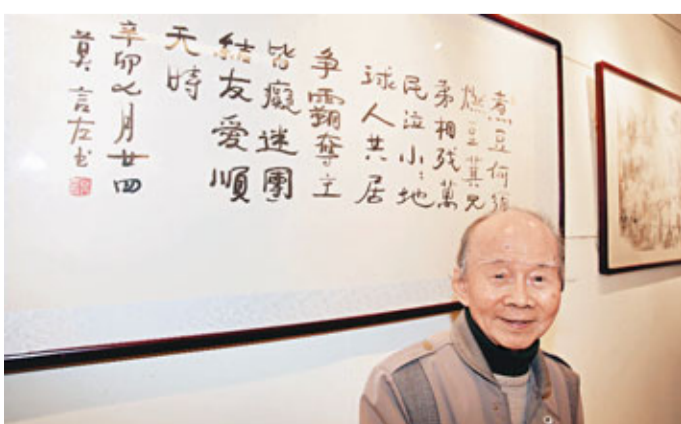 煮豆何須
燃豆萁兄
弟相残萬
民泣小〻地
球人共居
争霸奪主
皆癡迷團
結友愛順
天時
辛卯七月廿四
莫言左书